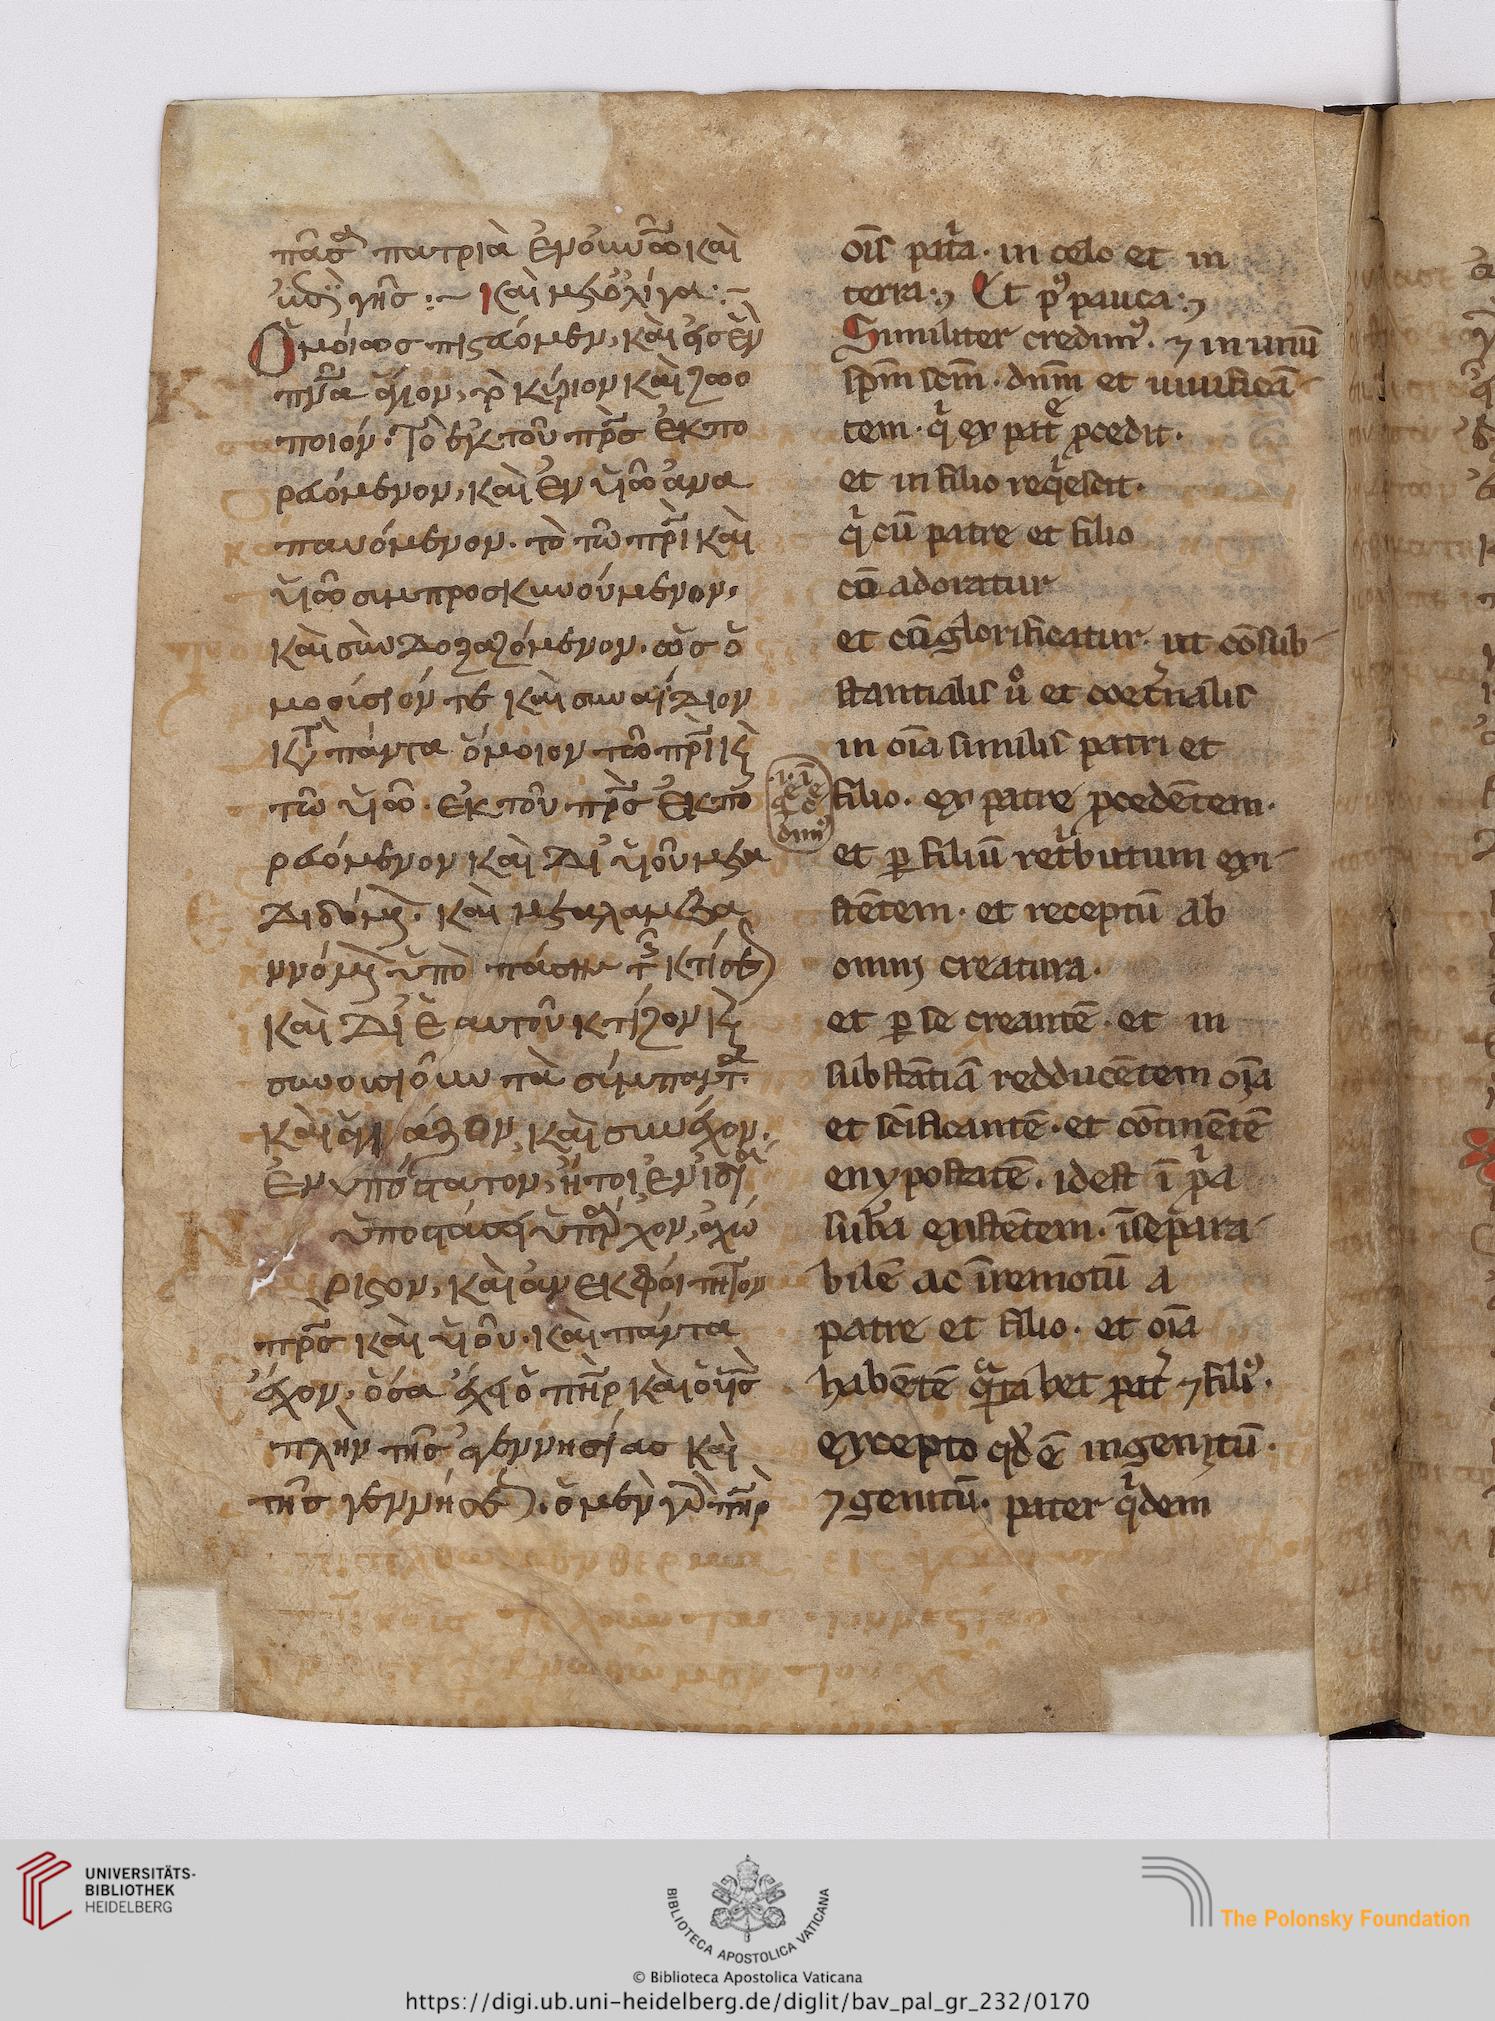 πᾶσα πατριὰ ἐν οὐνῶ καὶ
ἐπὶ γῆς :~ Καὶ μετ' ὀλίγα :~
Ὁμοίως πιστεύομεν, καὶ εἰς ἓν
πνᾶ ἅγιον, τὸ κύριον καὶ ζωο
ποιόν· Τὸ ἐκ τοῦ πρ̅ς ἐκπο
ρευόμενον, καὶ ἐν υἱῶ ἀνα
παυόμενον. τὸ τῶ πρ̅ι καὶ
υἱῶ συμπροσκυνούμενον,
καὶ συνδοξαζόμενον. ὡς ὁ
μοούσιόν τε καὶ συναΐδιον
πάντα ὅμοιον τῶ πρ̅ι κ̀
τῶ υἱῶ. ἐκ τοῦ πρ̅ς ἐκπο
ρευόμενον καὶ δι' υἱοῦ μετα
διδόμε̅. καὶ μεταλαμβα
νόμε̅ ὑπὸ πάσης τ̅ κτίσε̅
καὶ δι' ἑαυτοῦ κτίζον κ̀
συνουσιοῦν τὰ σύμπαντα
καὶ ἁγιάζον, καὶ συνέχον.
ἐνυπόστατον, ἤτοι ἐν ἰδίαι
ὑποστάσει ὑπάρχον, ἀχώ
ριστον, καὶ ἀνεκφοίτητον
πρ̅ς καὶ υἱοῦ. καὶ πάντα
ἔχον, ὅσα ἔχει ὁ πη̅ρ καὶ ὁ υἱς
πλὴν τῆς ἀγεννησίας καὶ
τῆς γεννήσε̅. ὁ μὲν γὰρ πη̅ρ
oı̅s pat͛a · in celo et in
terra :, Et p⁹ pauca :,
Similiter credim⁹ · ⁊ in unu̅
sp̅m sc̅m · dn̅m et uiuificā
tem · qͥ ex pat͛e p̱cedit ·
et in filio reqͥescit ·
qͥ cu̅ patre et filio
co̅adoratur
et co̅glorificatur · ut co̅sub
stantialis uͦ et coet͛nalis
in oı̅a similis patri et
filio · ex patre p̱cede̅tem ·
et ꝑ filiu̅ ret͛butum exi
ste̅tem · et receptu̅ ab
omni creatura ·
et ꝑ se creante̅ · et in
substa̅tia̅ redduce̅tem oı̅a
et sc̅ificante̅ · et co̅tine̅te̅
enypostate̅ · idest ı̅ pͥa
sub͛a existe̅tem · ı̅separa
bile̅ ac ı̅remotu̅ a
patre et filio · et oı̅a
habe̅te̅ · pat͛ ⁊ fili⁹ ·
excepto qd̛ e̅ ingenitu̅ ·
⁊ genitu̅ · pater qͥdem
UNIVERSITÄTS-
BIBLIOTHEK
HEIDELBERG
BIBLIOTECA APOSTOLICA VATICANA
© Biblioteca Apostolica Vaticana
The Polonsky Foundation
https://digi.ub.uni-heidelberg.de/diglit/bav_pal_gr_232/0170